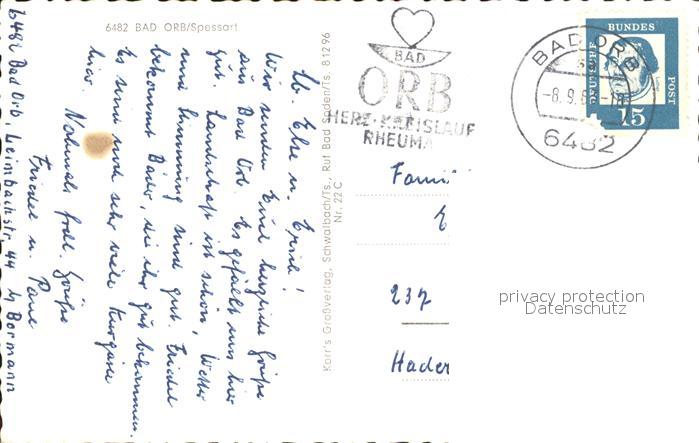 6482 BAD ORB/Spessart
Lb. Else u. Erich!
Wir senden Euch herzliche Grüße
aus Bad Orb. Es gefällt uns hier
gut. Landschaft ist schön, Wetter
und Stimmung sind gut. Friedel
bekommt Bäder, die ihr gut bekommen.
Es sind noch sehr viele Kurgäste
hier. Nochmals frdl. Grüße
Friedel u. Paul
6482 Bad Orb, Leimbachstr. 44 by Bormann
Karr's Großverlag, Schwalbach/Ts., Ruf Bad Soden/Ts. 81296
Nr. 22 C
BAD
ORB
HERZ-KREISLAUF
RHEUMA
BAD ORB
-8.9.6
6482
DEUTSCHE
BUNDES
POST
15
Fami
E
237
Hader
privacy protection
Datenschutz